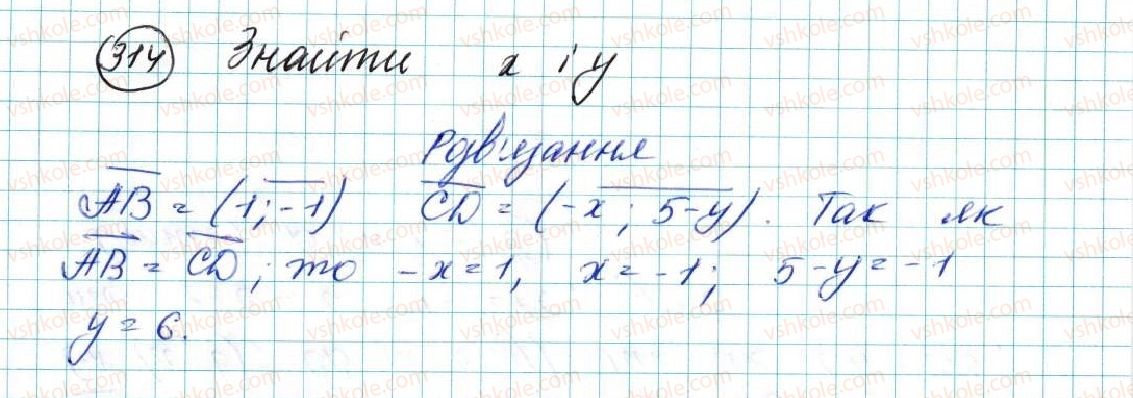 314 Знайти x і y
Розв'язання
AB = (1; -1) CD = (-x; 5-y). Так як
AB = CD; то -x=1, x=-1; 5-y=-1
y = 6.